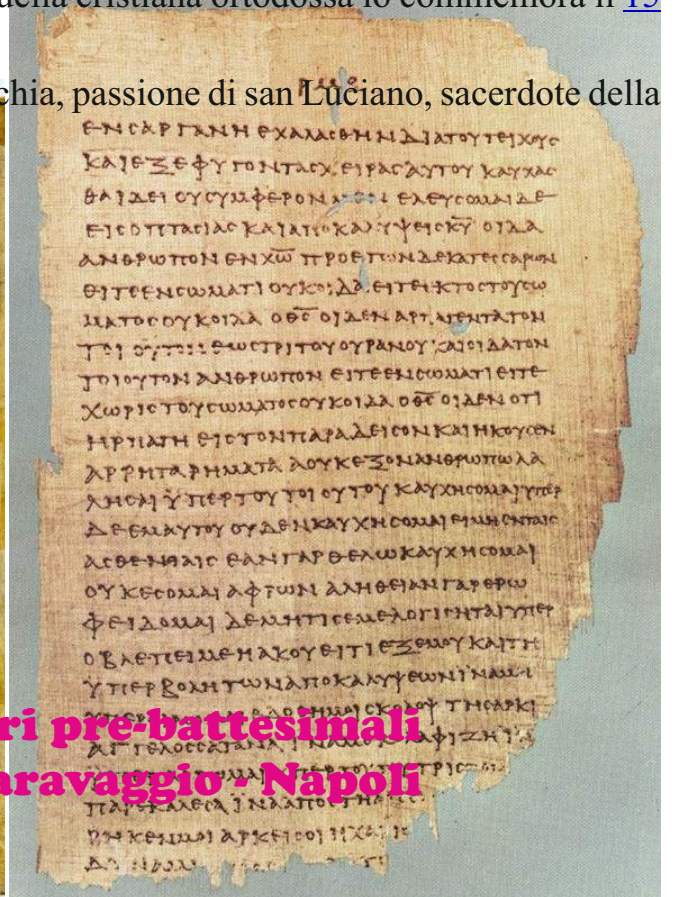 uella cristiana ortodossa lo commemora il 15
chia, passione di san Luciano, sacerdote della
ΕΝ ΣΑΡΓΑΝΗ ΕΧΑΛΑΣΘΗΝ ΔΙΑ ΤΟΥ ΤΕΙΧΟΥΣ
ΚΑΙ ΕΞΕΦΥΓΟΝ ΤΑΣ ΧΕΙΡΑΣ ΑΥΤΟΥ ΚΑΥΧΑΣ
ΘΑΙ ΔΕΙ ΟΥ ΣΥΜΦΕΡΟΝ ΜΕΝ ΕΛΕΥΣΟΜΑΙ ΔΕ
ΕΙΣ ΟΠΤΑΣΙΑΣ ΚΑΙ ΑΠΟΚΑΛΥΨΕΙΣ Κ̅Υ̅ ΟΙΔΑ
ΑΝΘΡΩΠΟΝ ΕΝ Χ̅Ω̅ ΠΡΟ ΕΤΩΝ ΔΕΚΑΤΕΣΣΑΡΩΝ
ΕΙΤΕ ΕΝ ΣΩΜΑΤΙ ΟΥΚ ΟΙΔΑ ΕΙΤΕ ΕΚΤΟΣ ΤΟΥ ΣΩ
ΜΑΤΟΣ ΟΥΚ ΟΙΔΑ Ο Θ̅Σ̅ ΟΙΔΕΝ ΑΡΠΑΓΕΝΤΑ ΤΟΝ
ΤΟΙΟΥΤΟΝ ΕΩΣ ΤΡΙΤΟΥ ΟΥΡΑΝΟΥ ΚΑΙ ΟΙΔΑ ΤΟΝ
ΤΟΙΟΥΤΟΝ ΑΝΘΡΩΠΟΝ ΕΙΤΕ ΕΝ ΣΩΜΑΤΙ ΕΙΤΕ
ΧΩΡΙΣ ΤΟΥ ΣΩΜΑΤΟΣ ΟΥΚ ΟΙΔΑ Ο Θ̅Σ̅ ΟΙΔΕΝ ΟΤΙ
ΗΡΠΑΓΗ ΕΙΣ ΤΟΝ ΠΑΡΑΔΕΙΣΟΝ ΚΑΙ ΗΚΟΥΣΕΝ
ΑΡΡΗΤΑ ΡΗΜΑΤΑ Α ΟΥΚ ΕΞΟΝ ΑΝΘΡΩΠΩ ΛΑ
ΛΗΣΑΙ ΫΠΕΡ ΤΟΥ ΤΟΙΟΥΤΟΥ ΚΑΥΧΗΣΟΜΑΙ ΫΠΕΡ
ΔΕ ΕΜΑΥΤΟΥ ΟΥΔΕΝ ΚΑΥΧΗΣΟΜΑΙ ΕΙ ΜΗ ΕΝ ΤΑΙΣ
ΑΣΘΕΝΕΙΑΙΣ ΕΑΝ ΓΑΡ ΘΕΛΩ ΚΑΥΧΗΣΟΜΑΙ
ΟΥΚ ΕΣΟΜΑΙ ΑΦΡΩΝ ΑΛΗΘΕΙΑΝ ΓΑΡ ΕΡΩ
ΦΕΙΔΟΜΑΙ ΔΕ ΜΗ ΤΙΣ ΕΜΕ ΛΟΓΙΣΗΤΑΙ ΫΠΕΡ
Ο ΒΛΕΠΕΙ ΜΕ Η ΑΚΟΥΕΙ ΤΙ ΕΞ ΕΜΟΥ ΚΑΙ ΤΗ
ΫΠΕΡΒΟΛΗ ΤΩΝ ΑΠΟΚΑΛΥΨΕΩΝ ΪΝΑ ΜΗ
ΣΚΟΛΟΨ ΤΗ ΣΑΡΚΙ
ΑΓΓΕΛΟΣ ΣΑΤΑΝΑ ΪΝΑ ΜΕ
ΠΑΡΕΚΑΛΕΣΑ ΪΝΑ ΑΠΟΣΤΗ
ΡΗΚΕΝ ΜΟΙ ΑΡΚΕΙ ΣΟΙ Η ΧΑΡΙΣ
ri pre-battesimali
aravaggio - Napoli